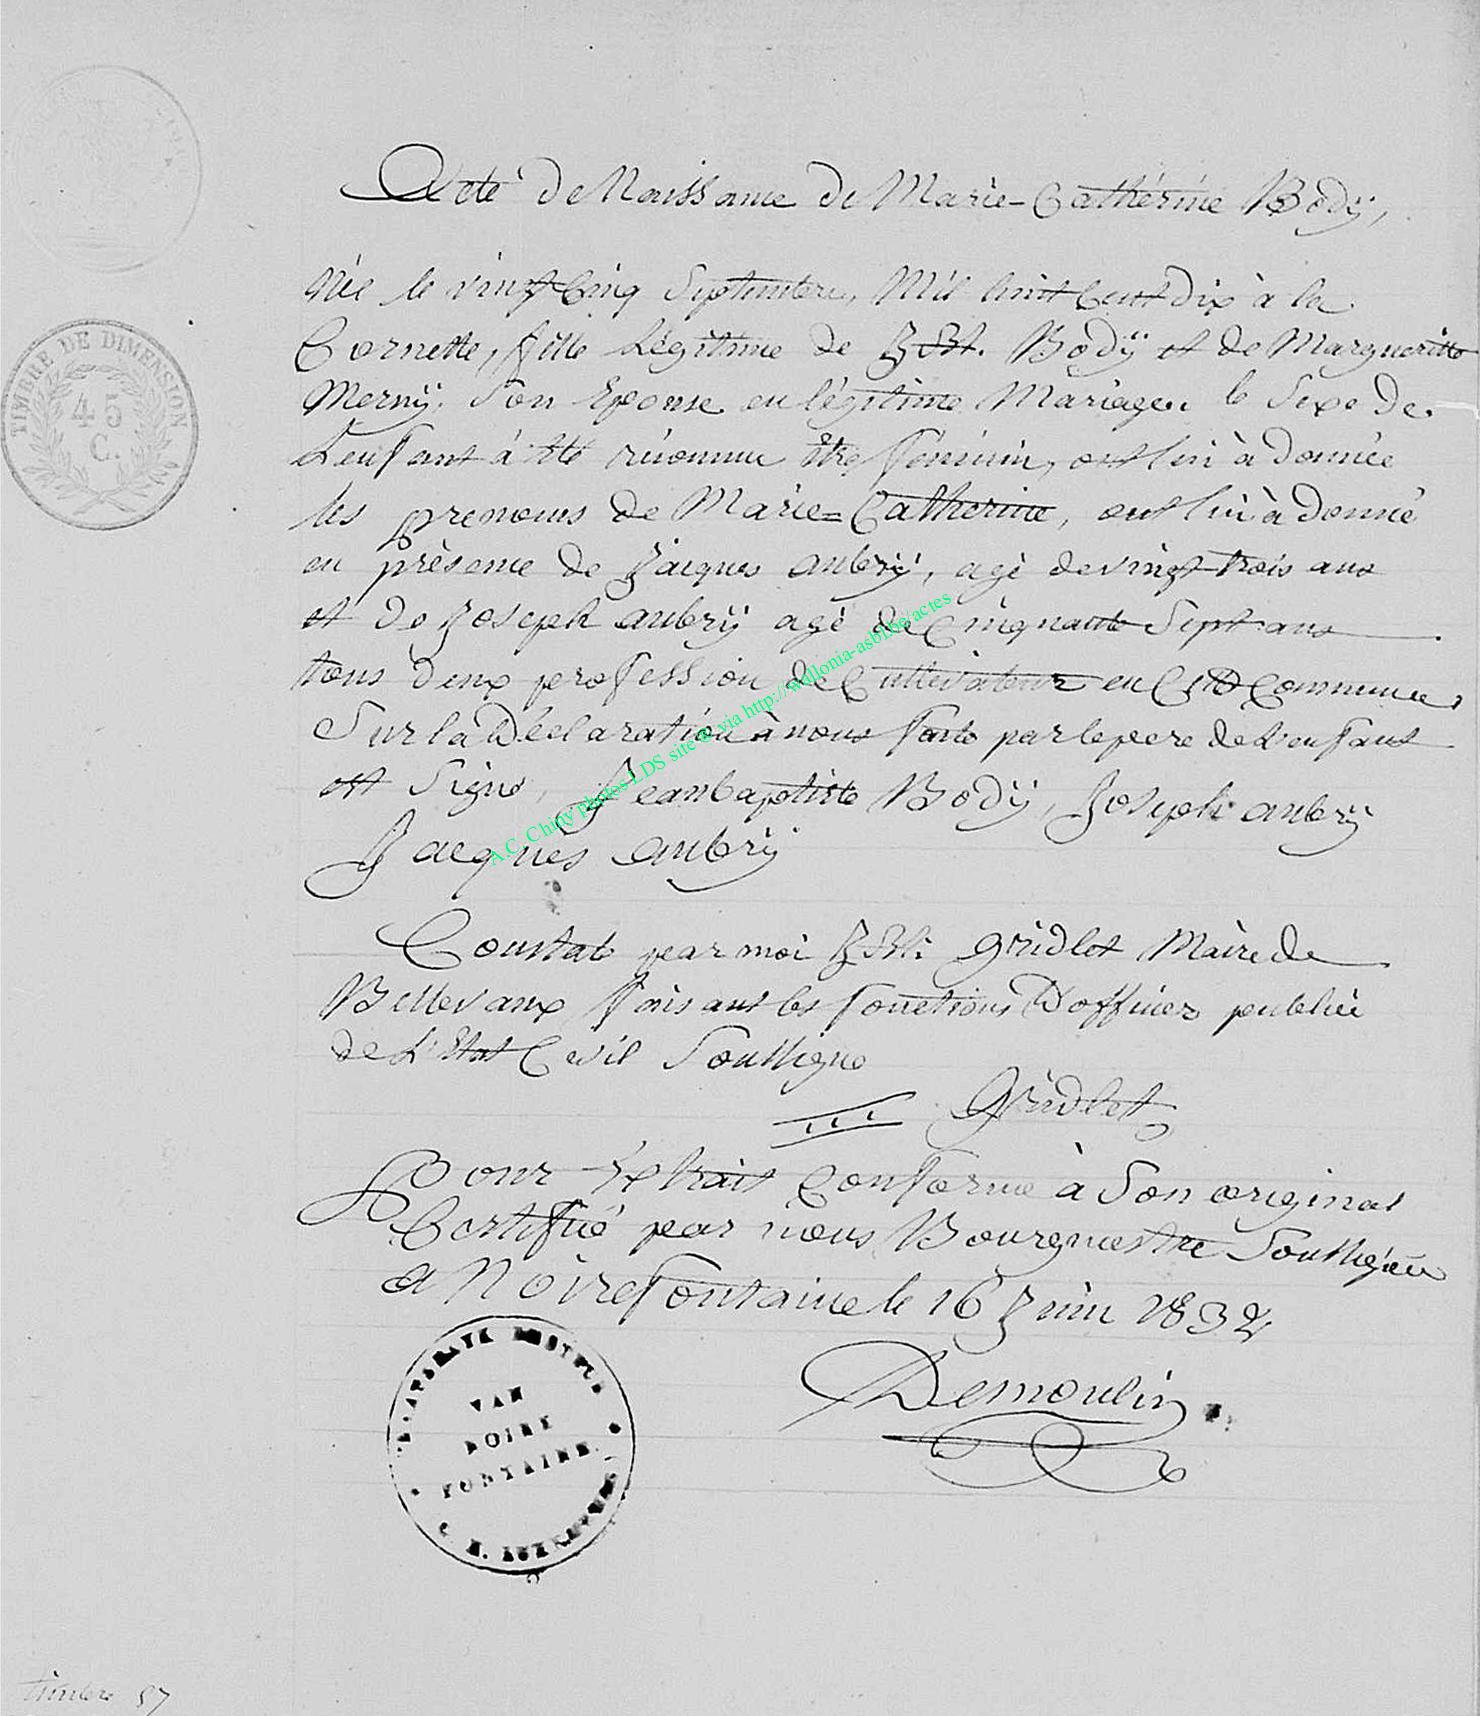 Acte de Naissance de Marie-Cathérine Bodÿ,
Née le vingt Cinq Septembre, Mil huit Cent dix à la
Cornette, fille Légitime de J. Bt. Bodÿ et de Margueritte
Mernÿ. Son Epouse en légitime Mariagen le Sexe de
L'enfant à été réconnu être féminin, ont lui à donnée
les prenoms de Marie=Catherine, ont lui à donné
en présence de Jacques aubrÿ, agé de vingt-trois ans
et de Joseph aubrÿ agé de Cinquante Sept ans
tous deux profession de Cultivateur en Cette Commune
Sur la Déclaration à nous faite par le pere de L'enfant
est Signé, Jean baptiste Bodÿ, Joseph aubrÿ
Jacques aubrÿ
Constaté par moi J. Bt. Gridlet Maire de
Bellevaux faisant les fonctions D'officier publiée
de L'Etat Civil Soussigné
Gridlet
Pour Extrait Conforme à Son original
Certifié par nous Bourgmestre Soussigné
a Noirefontaine le 16 Juin 1832
Demoulin
TIMBRE DE DIMENSION
45
C.
VAN
NOIRE
FONTAINE
timbre 57
A.C. Chiny photos LDS site © via http://wallonia-asbl.be/actes